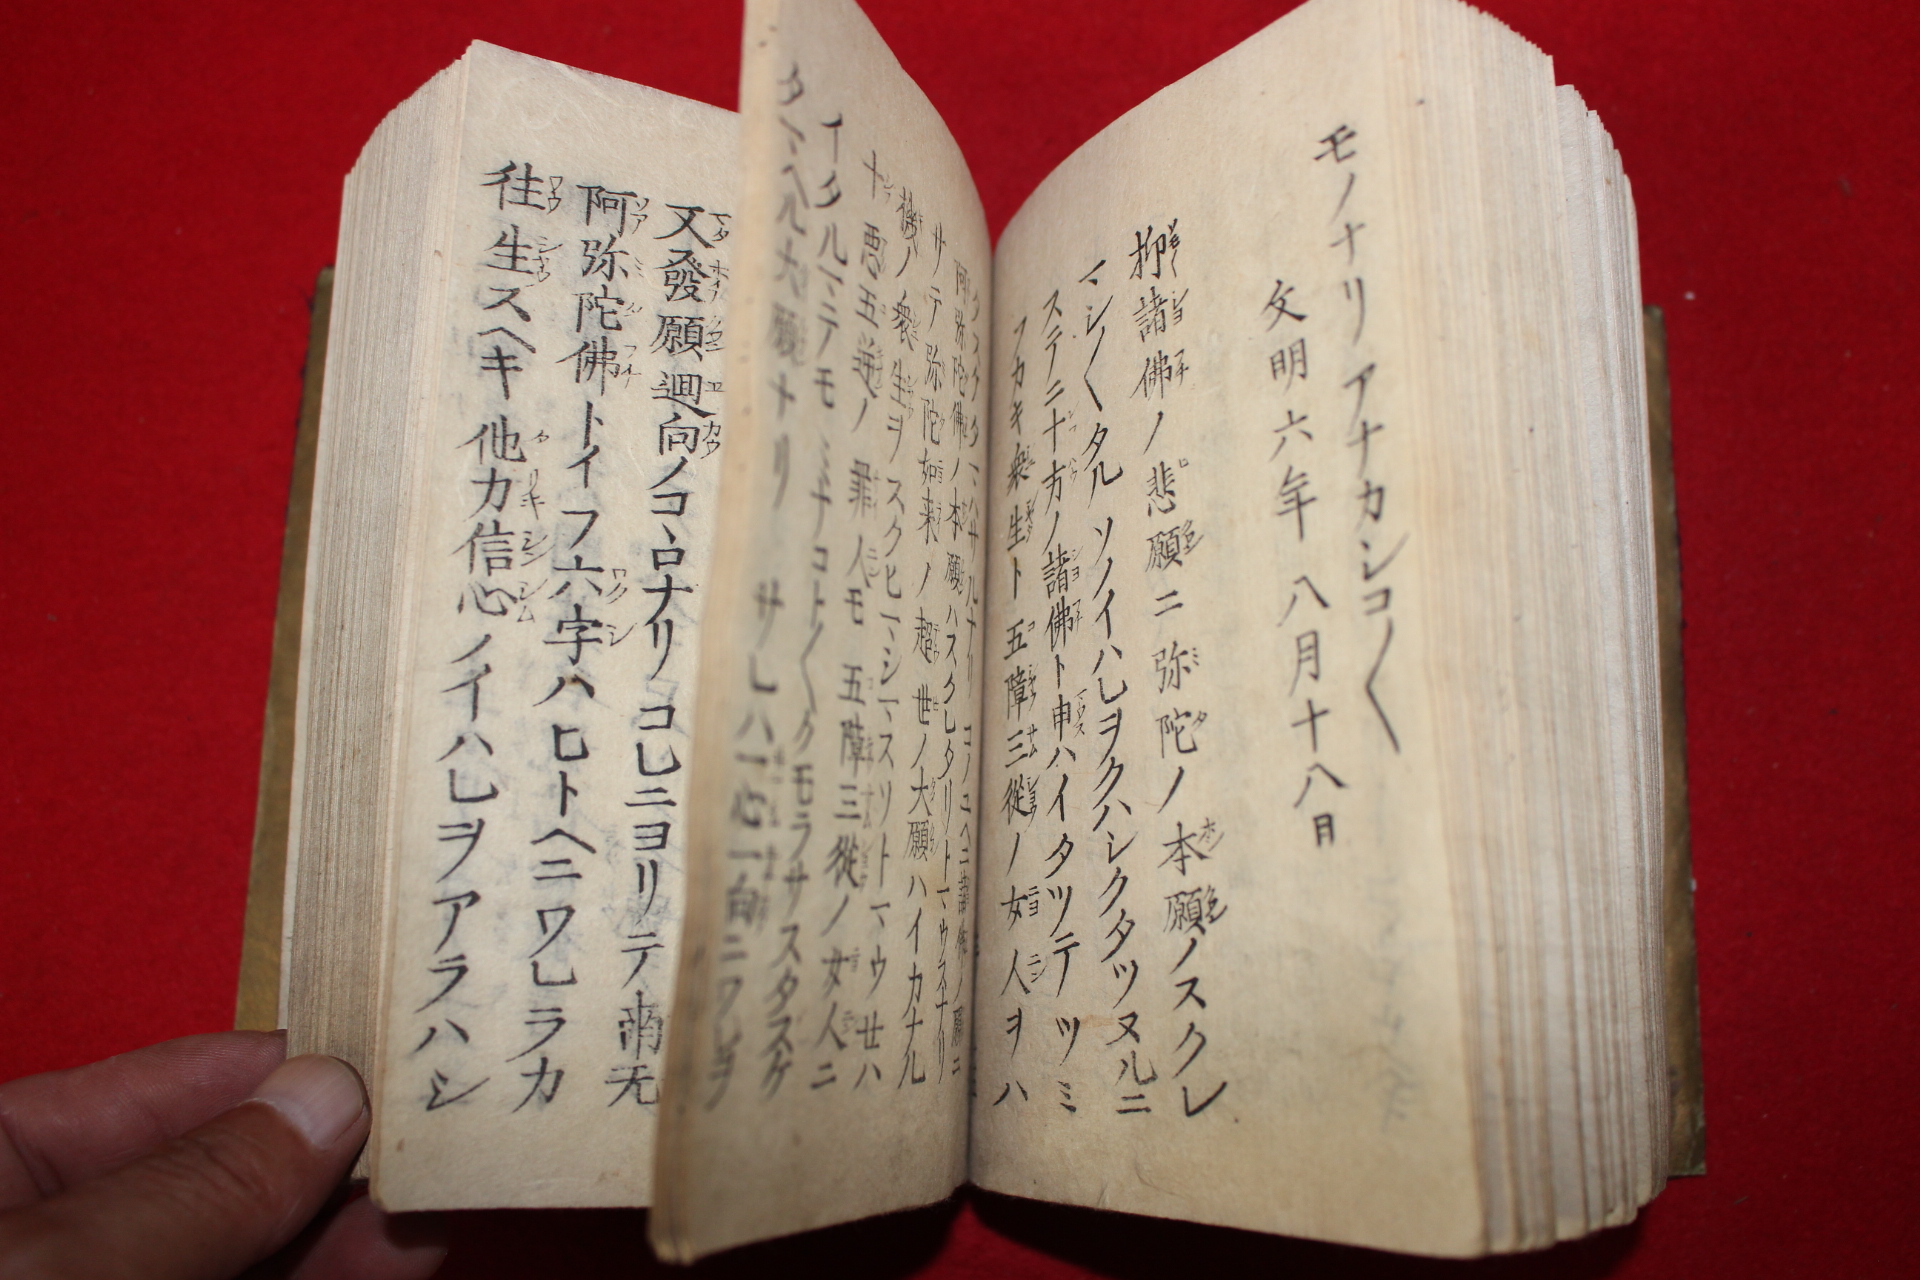 モノナリアナカシコ〱
文明六年八月十八日
抑諸佛ノ悲願ニ弥陀ノ本願ノスクレ
マシ〱タルソノイハレヲクハシクタツヌルニ
ステニ十方ノ諸佛ト申ハイタツテツミ
フカキ衆生ト五障三從ノ女人ヲハ
阿弥陀佛ノ本願ハスクレタリトマウスナリ
サテ弥陀如来ノ超世ノ大願ハイカナル
機ノ衆生ヲスクヒマシマスソトマウセハ
十悪五逆ノ罪人モ五障三從ノ女人ニ
イタルマテモミナコト〱クモラサスタスケ
タマヘル大願ナリサレハ一心一向ニワレヲ
又發願廻向ノコヽロナリコレニヨリテ南无
阿弥陀佛トイフ六字ハヒトヘニワレラカ
往生スヘキ他力信心ノイハレヲアラハシ